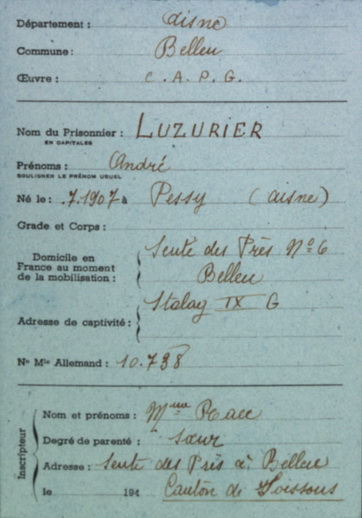 Département : Aisne
Commune : Belleu
Œuvre : C. A. P. G.
Nom du Prisonnier : LUZURIER
EN CAPITALES
Prénoms : André
SOULIGNER LE PRÉNOM USUEL
Né le : .7.1907 à Pessy (Aisne)
Grade et Corps :
Domicile en France au moment de la mobilisation : Sente des Près N° 6
Belleu
Adresse de captivité : Stalag IX G
N° Mle Allemand : 10.738
Inscripteur
Nom et prénoms : Mme Race
Degré de parenté : sœur
Adresse : Sente des Près à Belleu
le 194 Canton de Soissons